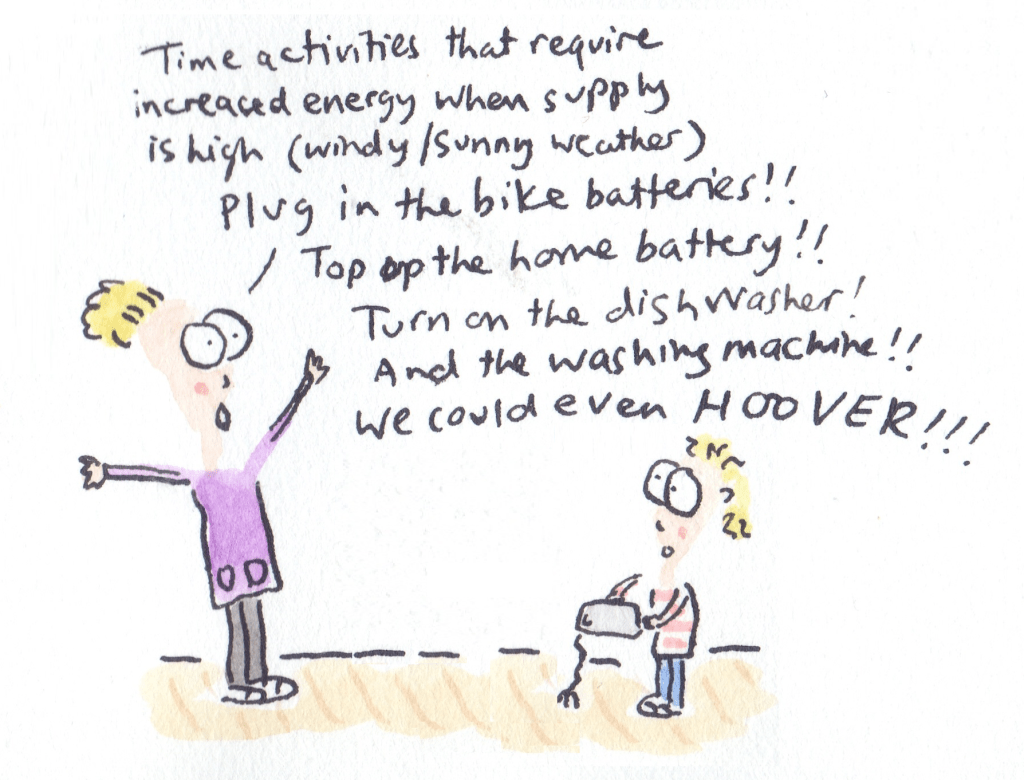 Time activities that require
increased energy when supply
is high (windy/sunny weather)
Plug in the bike batteries!!
Top up the home battery!!
Turn on the dishwasher!
And the washing machine!!
We could even HOOVER!!!